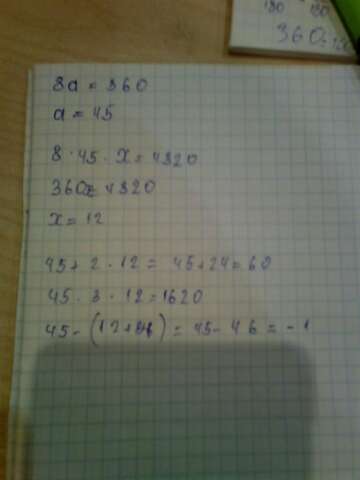 180 180
360:
8a = 360
a = 45
8 · 45 · x = 4320
360x = 4320
x = 12
45 + 2 · 12 = 45 + 24 = 69
45 · 3 · 12 = 1620
45 - (12 + ) = 45 - 46 = - 1